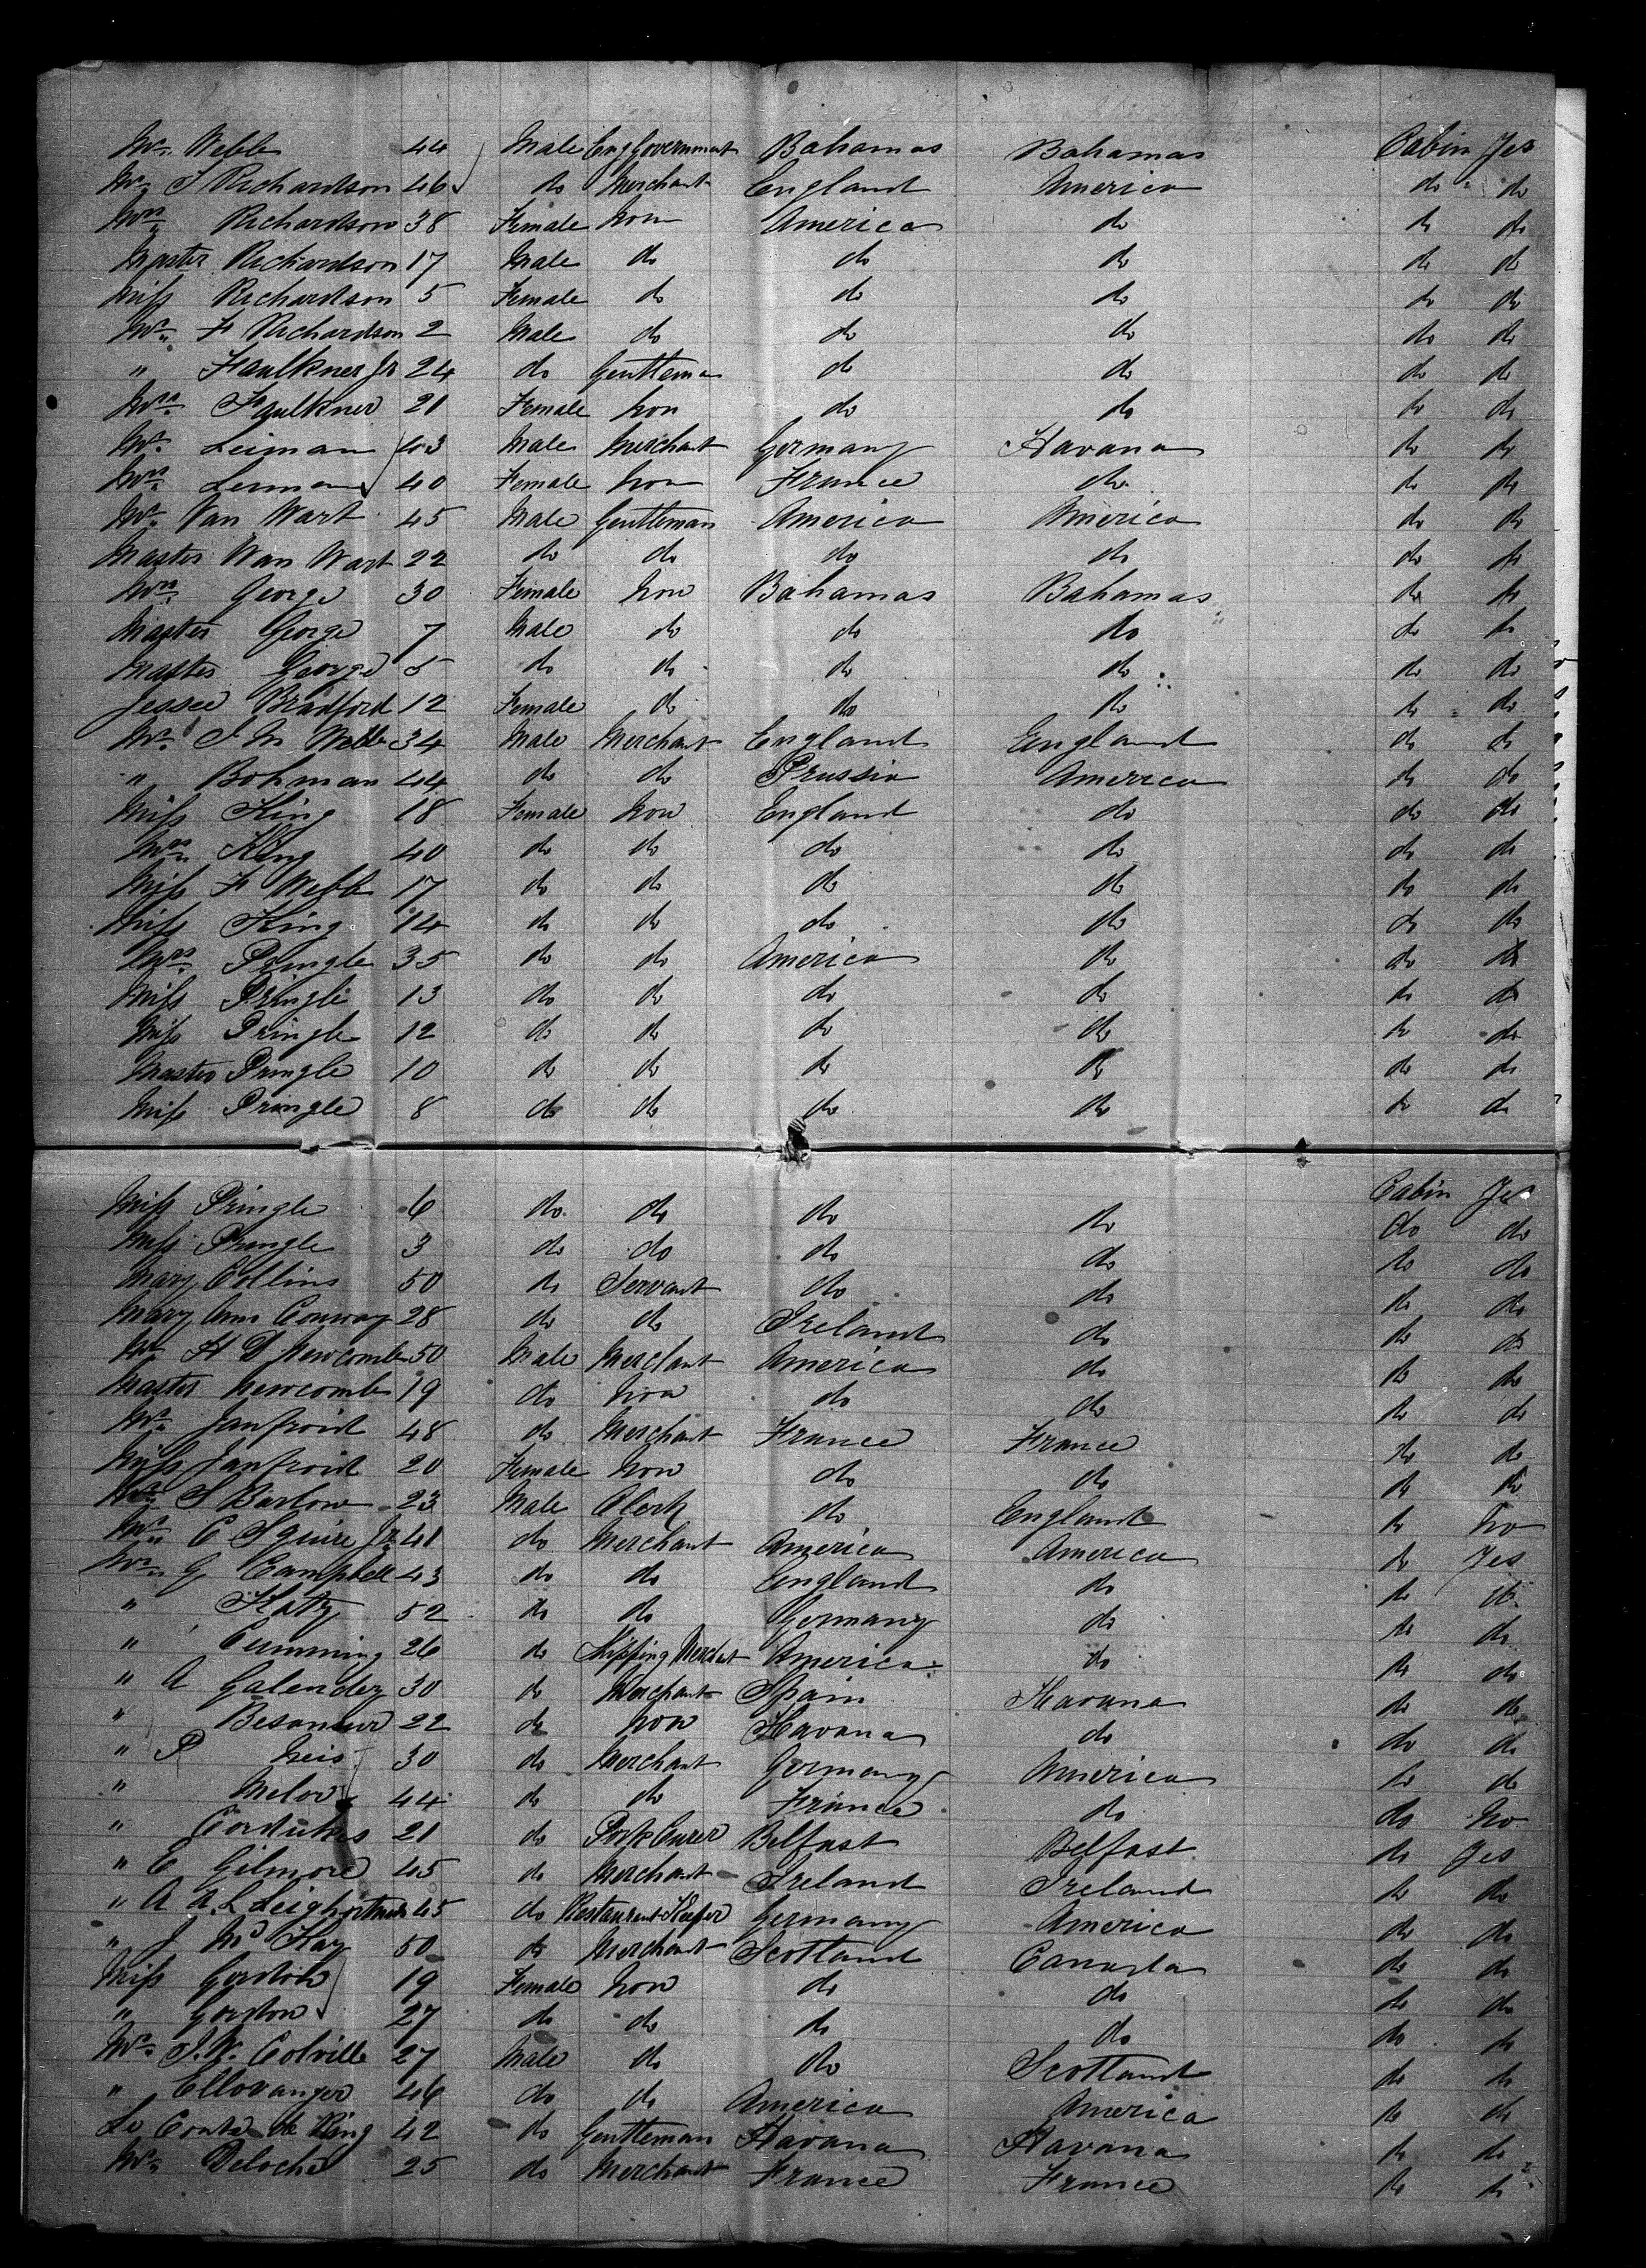 Mr. Webb 44 Male Eng Government Bahamas Bahamas Cabin Yes
Mr. J Richardson 46 do Merchant England America do do
Mrs. Richardson 38 Female non America do do do
Master Richardson 17 Male do do do do do
Miss Richardson 5 Female do do do do do
Mr. F Richardson 2 Male do do do do do
" Faulkner Jr 24 do Gentleman do do do do
Mrs. Faulkner 21 Female non do do do do
Mr. Leiman 43 Male Merchant Germany Havana do do
Mrs. Leiman 40 Female non France do do do
Mr. Van Wart 45 Male Gentleman America America do do
Master Van Wart 22 do do do do do do
Mrs. George 30 Female non Bahamas Bahamas do do
Master George 7 Male do do do do do
Master George 5 do do do do do do
Jessee Bradford 12 Female do do do do do
Mr. J M Webb 34 Male Merchant England England do do
" Bohman 44 do do Prussia America do do
Miss King 18 Female non England do do do
Mrs. King 40 do do do do do do
Miss F Webb 17 do do do do do do
Miss King 14 do do do do do do
Mrs. Pringle 35 do do America do do do
Miss Pringle 13 do do do do do do
Miss Pringle 12 do do do do do do
Master Pringle 10 do do do do do do
Miss Pringle 8 do do do do do do
Miss Pringle 6 do do do do Cabin Yes
Miss Pringle 3 do do do do do do
Mary Collins 50 do Servant do do do do
Mary Ann Conway 28 do do Ireland do do do
Mr H D Newcomb 50 Male Merchant America do do do
Master Newcomb 19 do non do do do do
Mr. Janfroid 48 do Merchant France France do do
Miss Janfroid 20 Female non do do do do
Mr. S Barlow 23 Male Clerk do England do do
Mr. C Squire Jr 41 do Merchant America America do no
Mr. G Campbell 43 do do England do do Yes
" Katz 52 do do Germany do do do
" Cumming 26 do Shipping Merchant America do do do
" A Galendez 30 do Merchant Spain Havana do do
" 22 do non Havana do do do
" P Neis 30 do Merchant Germany America do do
" Melor 44 do do France do do do
" Cordukes 21 do Pork Curer Belfast Belfast do no
" E Gilmore 45 do Merchant Ireland Ireland do Yes
" A A. L 45 do Restaurant Keeper Germany America do do
" J McKay 50 do Merchant Scotland Canada do do
Miss Gordon 19 Female non do do do do
" Gordon 27 do do do do do do
Mr. J. W. Colville 27 Male do do Scotland do do
" Ellovanger 46 do do America America do do
Le Conte de King 42 do Gentleman Havana Havana do do
Mr. Deloche 25 do Merchant France France do do